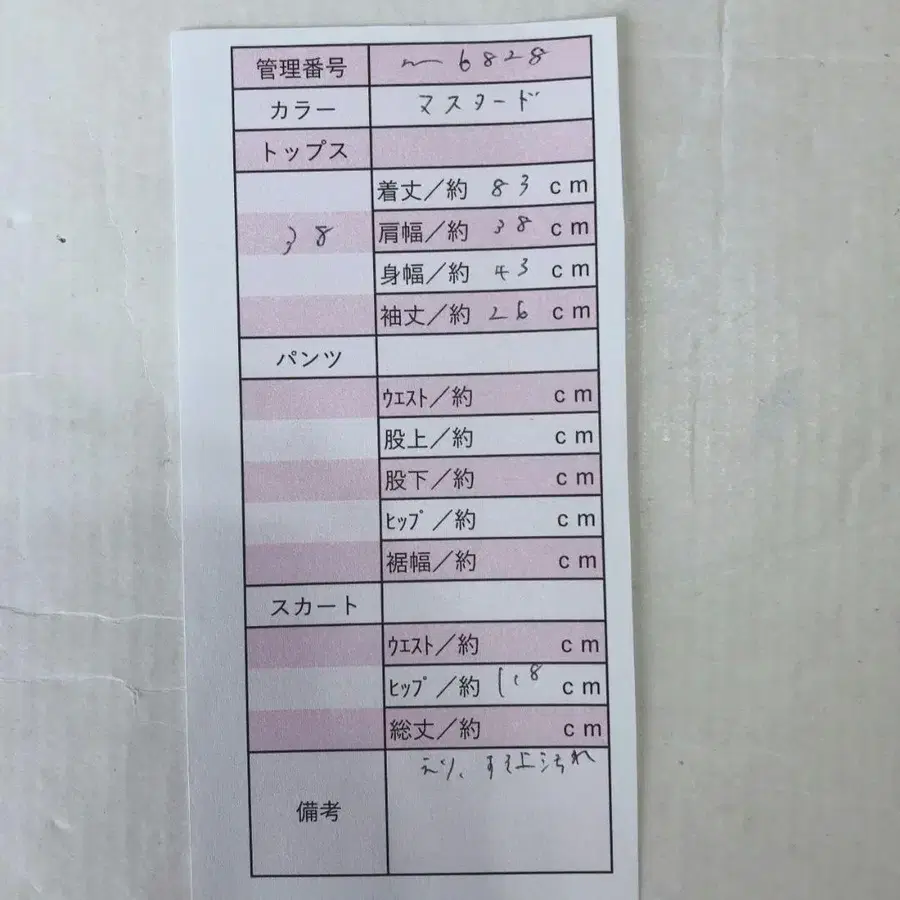 管理番号 m 6828
カラー マスタード
トップス
38
着丈／約 83 cm
肩幅／約 38 cm
身幅／約 43 cm
袖丈／約 26 cm
パンツ
ウエスト／約 cm
股上／約 cm
股下／約 cm
ヒップ／約 cm
裾幅／約 cm
スカート
ウエスト／約 cm
ヒップ／約 cm
総丈／約 cm
えり、すそ上汚れ
備考